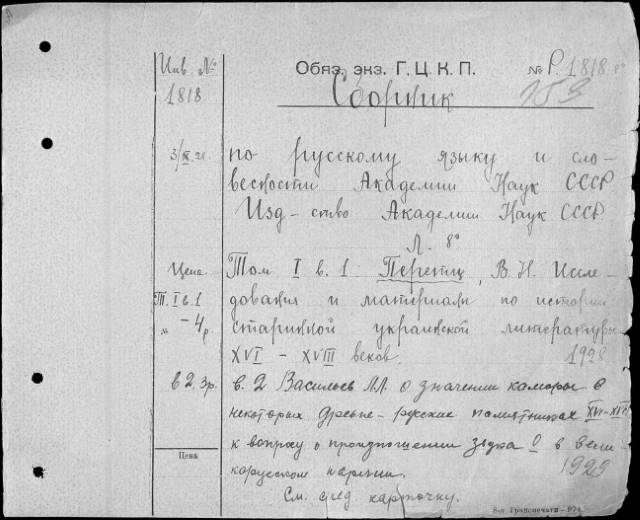 Инв. № Обяз. экз. Г. Ц. К. П. № Р. 1818
1818 Сборник 153
3/IX.28 по русскому языку и сло-
весности Академии Наук СССР
Изд-ство Академии Наук СССР
Л. 8°
Цена. Том I в. 1 Перетц, В. Н. Иссле-
Т. I в. 1 дования и материалы по истории
" – 4 р. старинной украинской литературы
XVI – XVIII веков. 1928
в 2. 3р. в. 2 Васильев Л.Л. о значении каморы в
некоторых древне-русских памятниках XVI-XVII
к вопросу о произношении звука О в вели-
Цена
корусском наречии. 1929
См. след карточку.